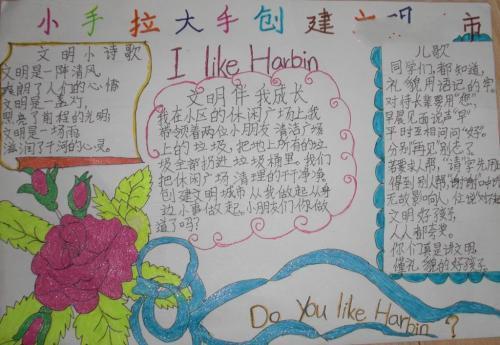 小手拉大手创建文明 市
I like Harbin
文明小诗歌
文明是一阵清风,
了人们的心情
文明是一盏灯,
照亮了前程的光明
文明是一场雨
滋润了干河的心灵。
文明伴我成长
我在小区的休闲广场上我
带领着两位小朋友清洁广场
上的垃圾,把地上所有的垃
圾全部扔进垃圾桶里。我们
把休闲广场清理的干干净净
创建文明城市从我做起从身
边小事做起,小朋友们你做
道了吗?
儿歌
同学们,都知道,
礼貌用语记的
对待长辈要用"您",
早晨见面说声"早"
平时互相问问"好",
分别再见别忘了
若要求人帮,"请"字先用
得到别人帮,
无故影响人,
文明好孩子
人人都夸奖。
你们真是讲文明
懂礼貌的好孩子
Do You like Harbin ?